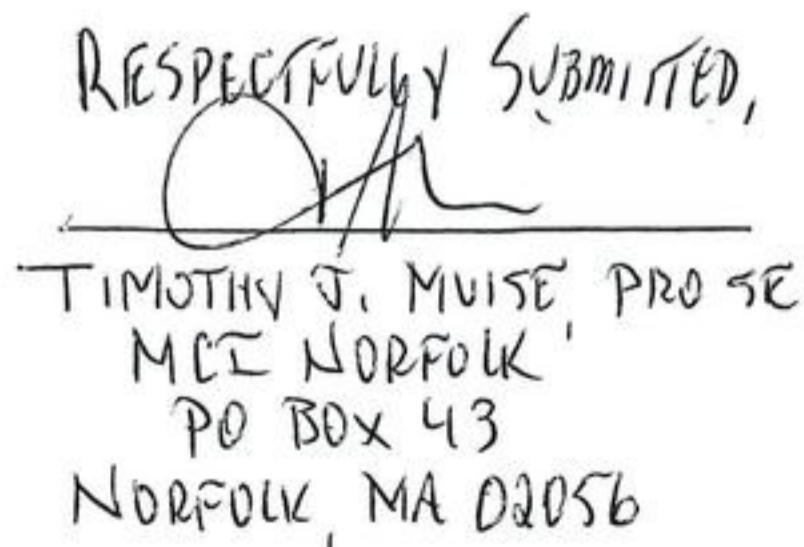 RESPECTFULLY SUBMITTED,
TIMOTHY J. MUISE, PRO SE
MCI NORFOLK
PO BOX 43
NORFOLK, MA 02056